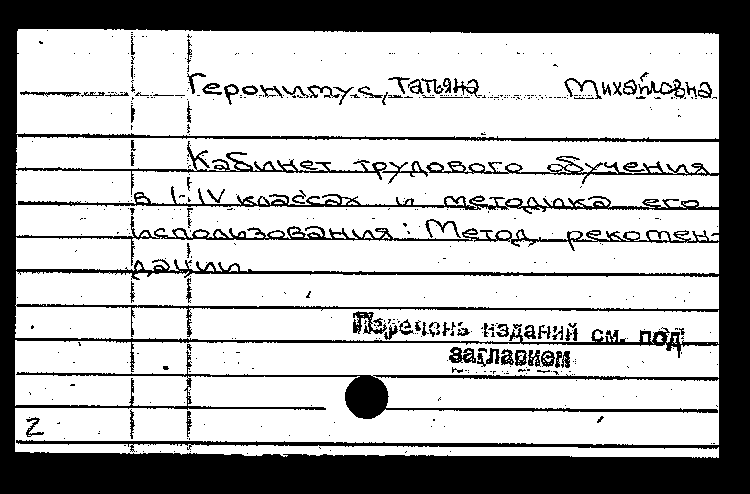 Геронимус, Татьяна Михайловна
Кабинет трудового обучения
в I-IV классах и методика его
использования: Метод. рекомен-
дации.
Перечень изданий см. под
заглавием
2